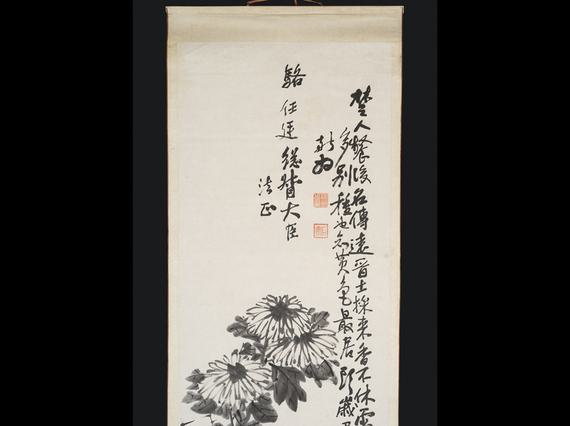 楚人餐後名傳遠晉士採來香不休
多別種也知黃色最居頭歲
敬為
駱任廷總督大臣
法正